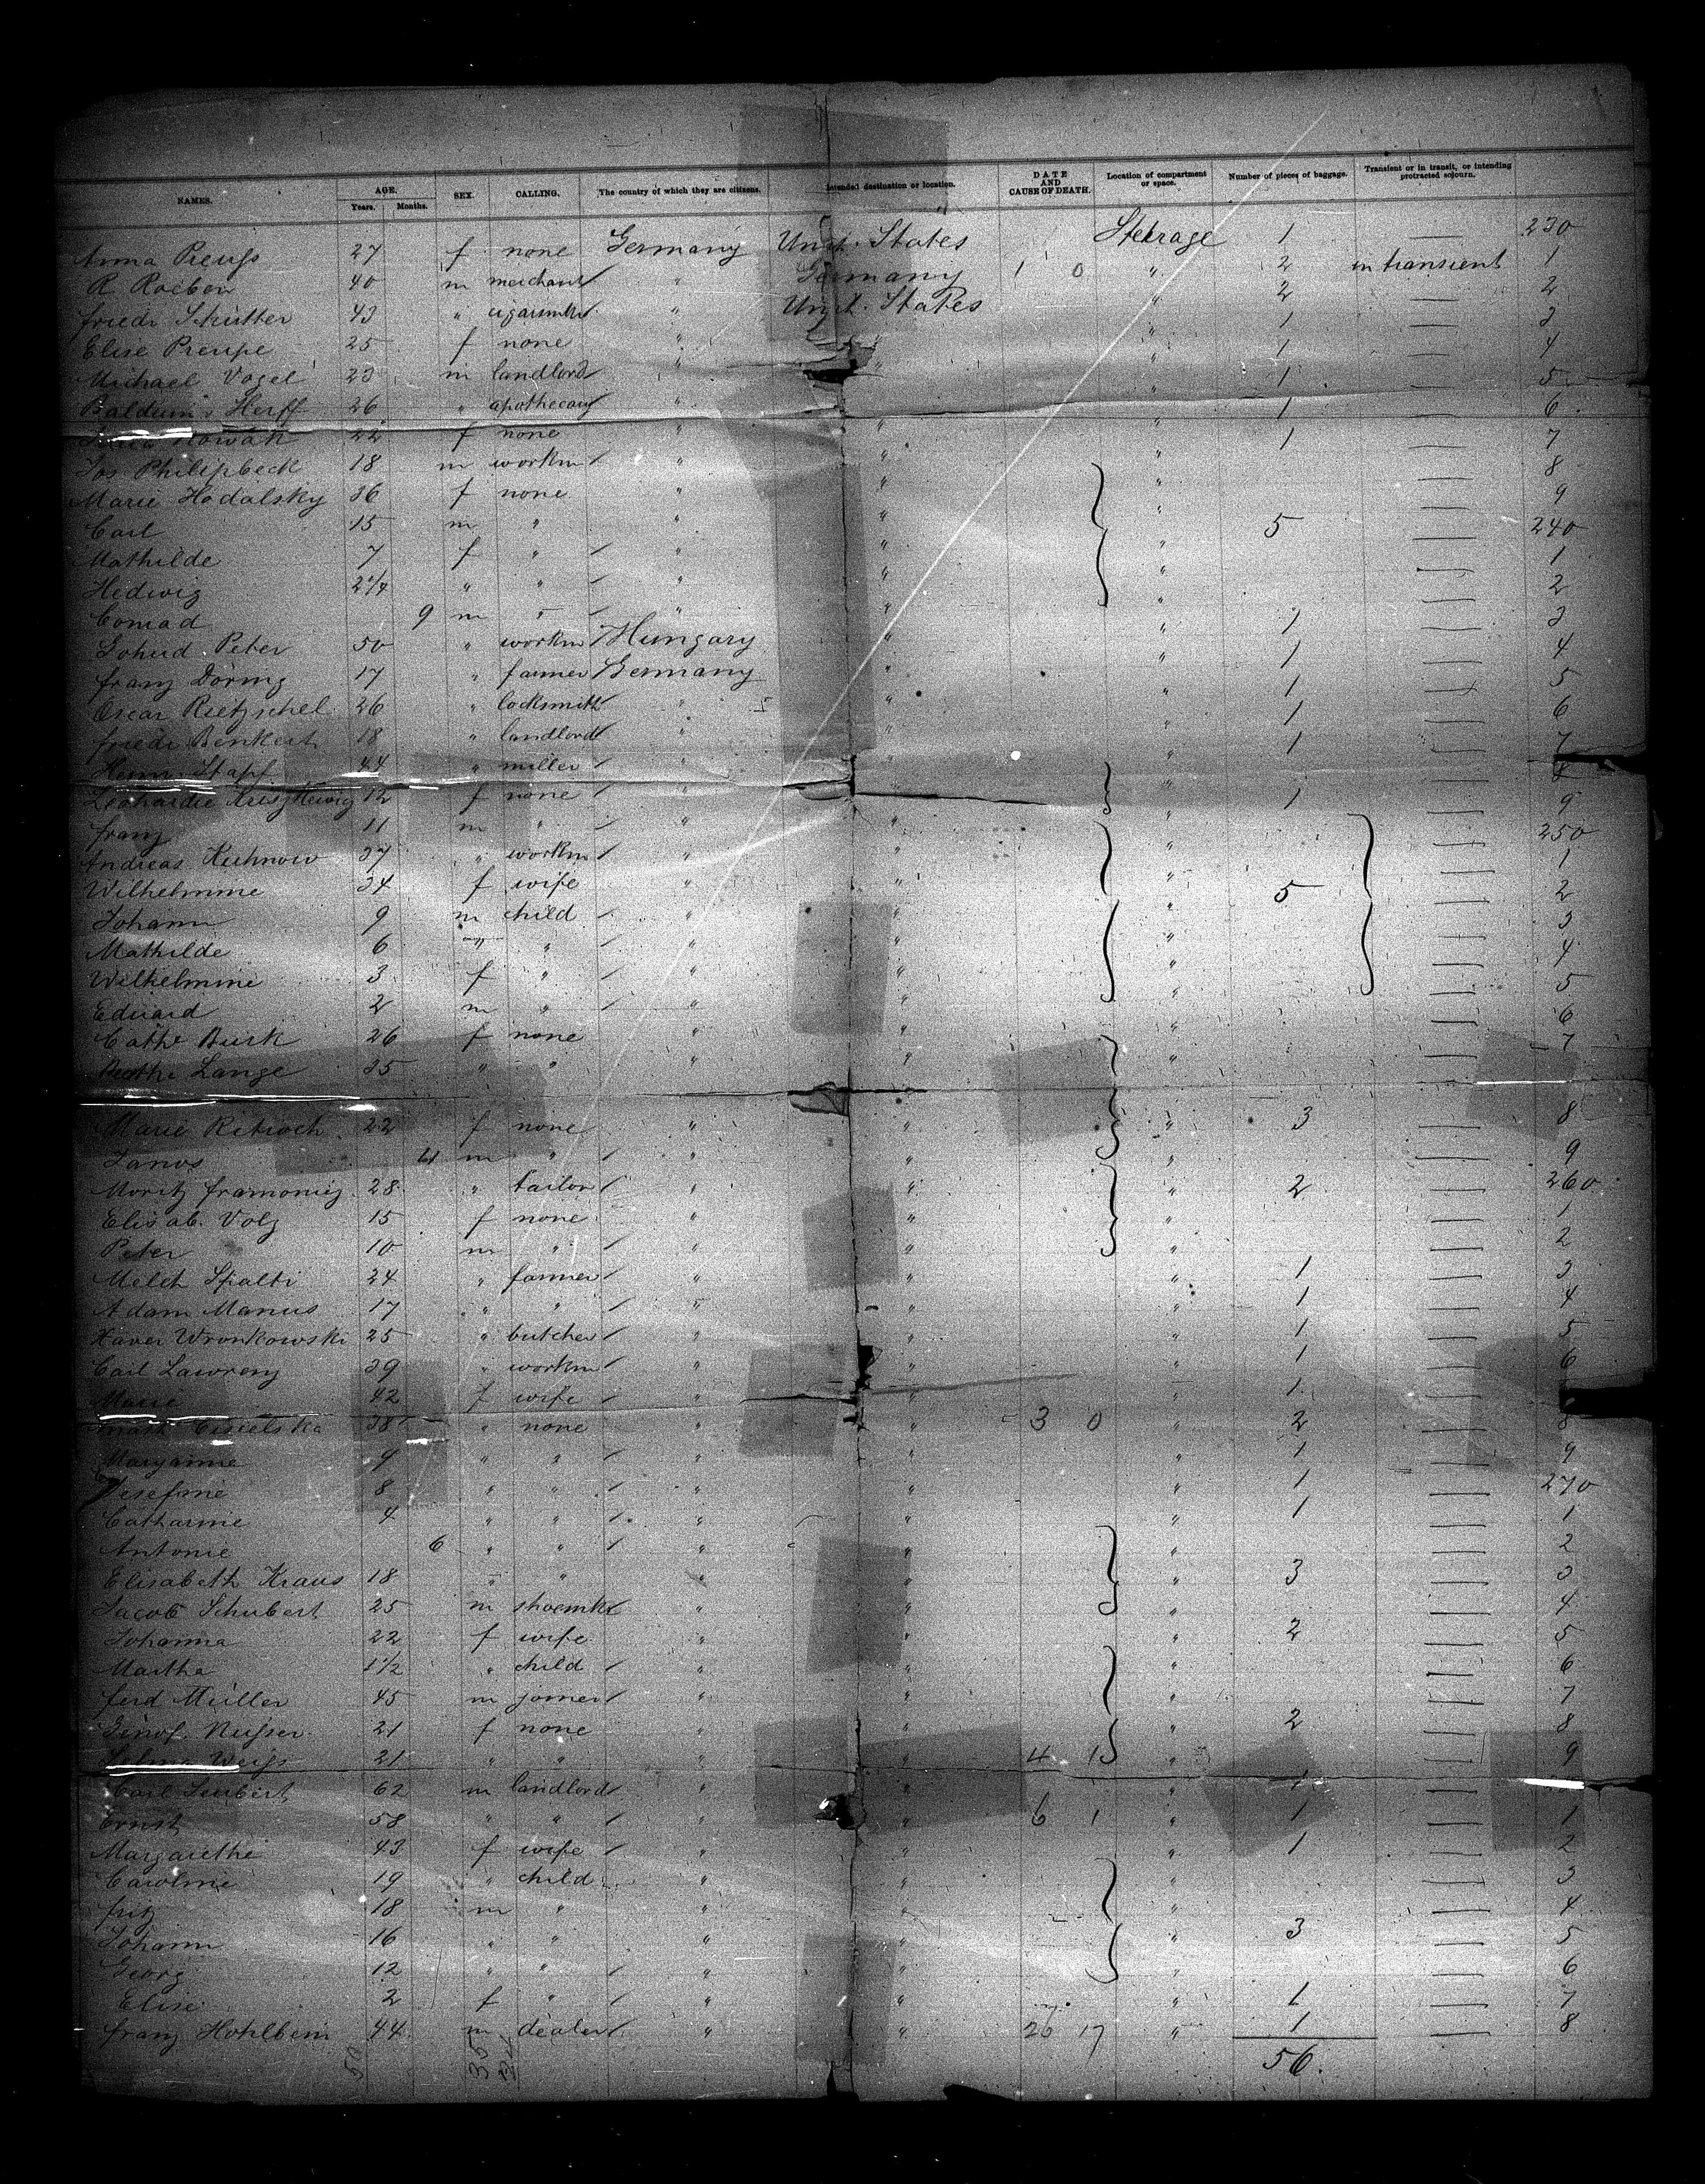 NAMES. AGE. SEX. CALLING. The country of which they are citizens. Intended destination or location. DATE AND CAUSE OF DEATH. Location of compartment or space. Number of pieces of baggage. Transient or in transit, or intending protracted sojourn.
Years. Months.
Anna Preuss 27 f none Germany Unit. States Steerage 1 — 230
R Roeben 40 m merchant " Germany 1 0 " 2 in transient 1
Friedr Schütter 43 " " Unit. States " 2 — 2
Elise 25 f none " " " 1 — 3
Michael Vogel 23 m landlord " " " 1 — 4
Herff 26 " apothecary " " " 1 — 5
22 f none " " " 1 — 6
Jos Philippbeck 18 m workm " " " 1 — 7
Marie Hodalsky 36 f none " " " — 8
Carl 15 m " " " " — 9
Mathilde 7 f " " " " 5 — 240
Hedwig " " " " " — 1
Conrad 9 m " " " " — 2
Peter 50 " workm Hungary " " 1 — 3
Franz Döring 17 " farmer Germany " " 1 — 4
Oscar Rietzschel 26 " locksmith " " " 1 — 5
Friedr Benkert 18 " landlord " " " 1 — 6
Stapf 44 " miller " " " 1 — 7
12 f none " " " —
Franz 11 m " " " " 1 — 9
Andreas Kuhnow 37 " workm " " " — 250
Wilhelmine 34 f wife " " " — 1
Johann 9 m child " " " 5 — 2
Mathilde 6 " " " " — 3
Wilhelmine 3 f " " " " — 4
Eduard 2 m " " " " — 5
Cathe Burk 26 f none " " " — 6
Lange 35 " " " " " — 7
Marie 22 f none " " " 3 — 8
Janos m " " " " — 9
Moritz 28 " tailor " " " 2 — 260
Elisab. Volz 15 f none " " " — 1
Peter 10 m " " " " — 2
Melch Spalti 24 " farmer " " " 1 — 3
Adam Manus 17 " " " " " 1 — 4
Xaver Wronkowski 25 " butcher " " " 1 — 5
Carl Lawrenz 39 " workm " " " 1 — 6
Marie 42 f wife " " " 1 —
38 " none " " 3 0 " 2 — 8
Maryanne 9 " " " " " 1 — 9
Josefine 8 " " " " " 1 — 270
Catharine 4 " " " " " 1 — 1
Antonie 6 " " " " " — 2
Elisabeth Kraus 18 " " " " " 3 — 3
Jacob Schubert 25 m shoemkr " " " — 4
Johanna 22 f wife " " " 2 — 5
Martha 1½ " child " " " — 6
Ferd Müller 45 m joiner " " " — 7
Genof. 21 f none " " " 2 — 8
Selma Weiss 21 " " " " 4 1 " — 9
Carl Seubert 62 m landlord " " " 1 —
Ernst 58 " " " " 6 1 " 1 — 1
Margarethe 43 f wife " " " 1 — 2
Caroline 19 " child " " " — 3
Fritz 18 m " " " " — 4
Johann 16 " " " " " 3 — 5
Georg 12 " " " " " — 6
Elise 2 f " " " " 1 — 7
Franz Hohlbein 44 m dealer " " 26 17 " 1 — 8
56.